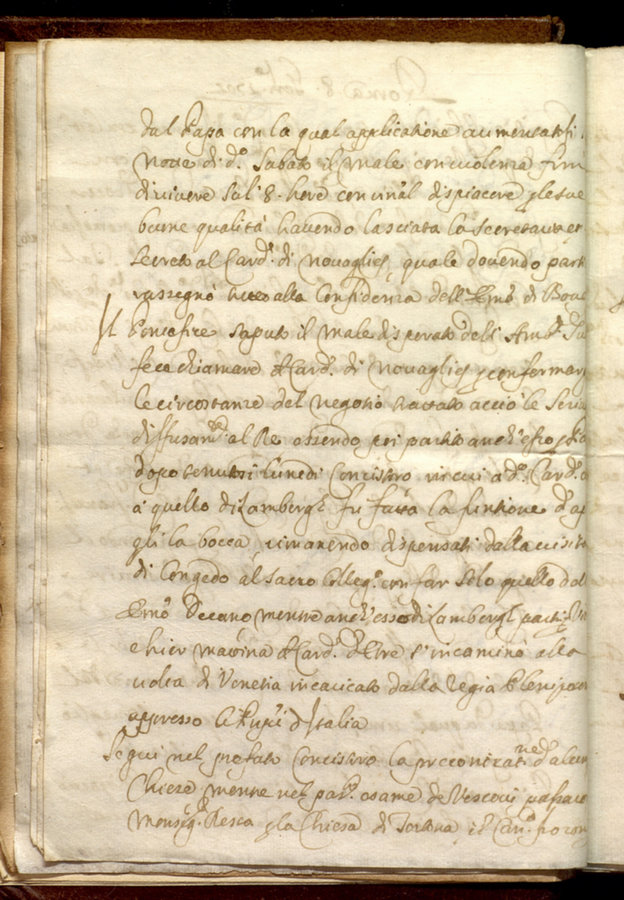 dal Papa con la qual applicatione aumentatosi
notte di d.º Sabato il male con violenza finì
di vivere sul' 8. here con un'al dispiacere p le sue
buone qualità havendo lasciata la secretaria et
secreto al Card. di Novaglies, quale dovendo parti
rassegnò tutto alla Confidenza dell' Em.º di Bou
Il Pontefice saputo il male disperato dell' Amb.
fece chiamare il Card. di Novaglies p confermar
le circostanze del negotio trattato acciò le scriu
diffusam.te al Re, essendo poi partito anch'esso
dopo tenutosi lunedì Concistoro in cui a d.º Card.
a quello di Lambergh fu fatta la funtione d'ap
gli la bocca, rimanendo dispensati dalla visita
di Congedo al Sacro Colleg.º con far solo quello dal
Em.º Decano, mentre anch'esso di Lambergh partì
e hier mattina il Card. d'Etré s'incaminò alla
volta di Venetia incaricato dalla Regia Plenipoten
appresso li Prpi d'Italia
Seguì nel prefato Concistoro la preconizat.ne d'alcun
Chiese mentre nel pas. esame de Vescovi passaro
Monsig. Resca p la Chiesa di Tortona, il Can.